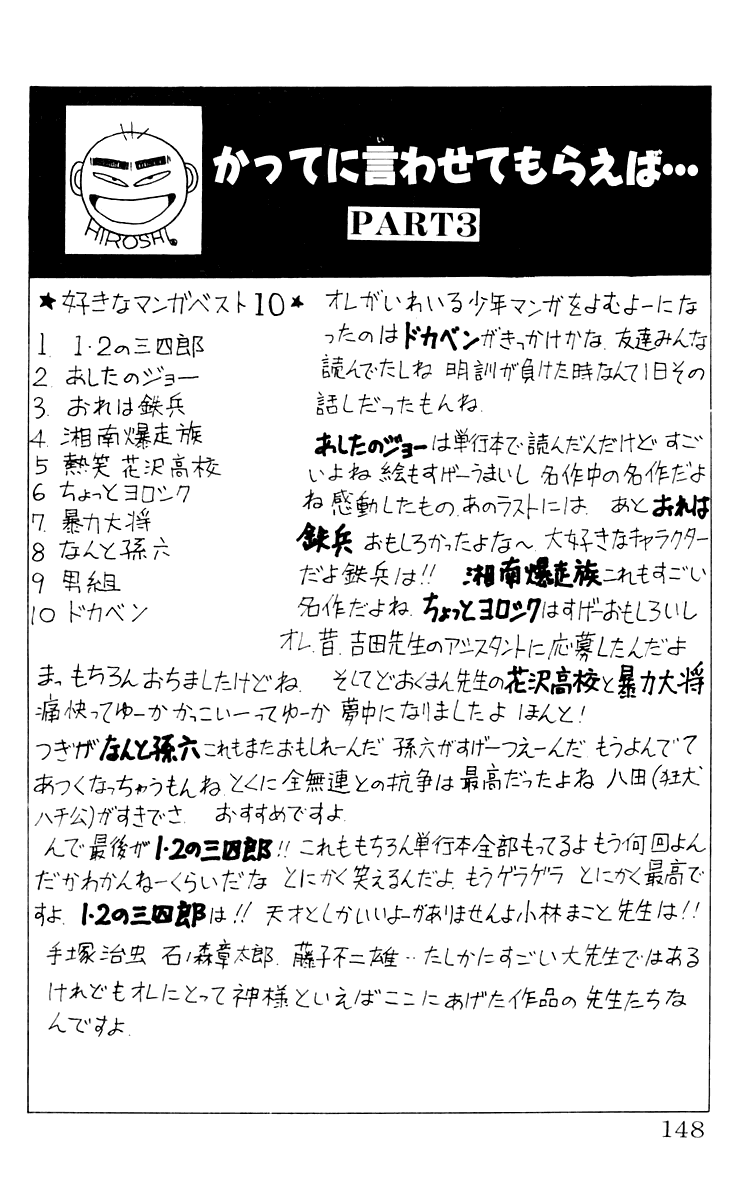 かってに言わせてもらえば…
い
PART3
HIROSHI.
★好きなマンガベスト10★
1. 1・2の三四郎
2. あしたのジョー
3. おれは鉄兵
4. 湘南爆走族
5 熱笑 花沢高校
6 ちょっとヨロシク
7. 暴力大将
8 なんと孫六
9 男組
10 ドカベン
オレがいわいる少年マンガをよむよーにな
ったのはドカベンがきっかけかな. 友達みんな
読んでたしね 明訓が負けた時なんて1日その
話しだったもんね.
あしたのジョーは単行本で読んだんだけど すご
いよね 絵もすげーうまいし 名作中の名作だよ
ね 感動したもの.あのラストには. あと おれは
鉄兵 おもしろかったよな〜. 大好きなキャラクター
だよ鉄兵は!! 湘南爆走族これもすごい
名作だよね. ちょっとヨロシクはすげーおもしろいし
オレ.昔.吉田先生のアシスタントに応募したんだよ
まっもちろんおちましたけどね. そしてどおくまん先生の花沢高校と暴力大将
痛快ってゆーか かっこいーってゆーか 夢中になりましたよ ほんと!
つぎがなんと孫六これもまたおもしれーんだ 孫六がすげーつえーんだ もうよんでて
あつくなっちゃうもんね とくに全無連との抗争は最高だったよね 八田(狂犬
ハチ公)がすきでさ. おすすめですよ.
んで最後が1・2の三四郎!! これももちろん単行本全部もってるよ もう何回よん
だかわかんねーくらいだな とにかく笑えるんだよ. もうゲラゲラ とにかく最高で
すよ. 1・2の三四郎は!! 天才としかいいよーがありませんよ小林まこと先生は!!
手塚治虫 石ノ森章太郎. 藤子不二雄‥たしかにすごい大先生ではある
けれどもオレにとって神様といえばここにあげた作品の先生たちな
んですよ.
148